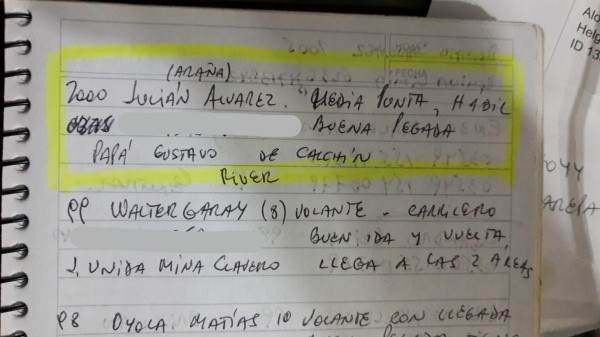 (ARAÑA)
2000 JULIÁN ALVAREZ. MEDIA PUNTA, HABIL
BUENA PEGADA
PAPÁ GUSTAVO DE CALCHÍN
RIVER
99 WALTER GARAY (8) VOLANTE - CARRILERO
BUEN IDA Y VUELTA
J. UNIDA MINA CLAVERO LLEGA A LAS 2 AREAS
98 OYOLA MATÍAS 10 VOLANTE CON LLEGADA
Alo
Helg
ID 13